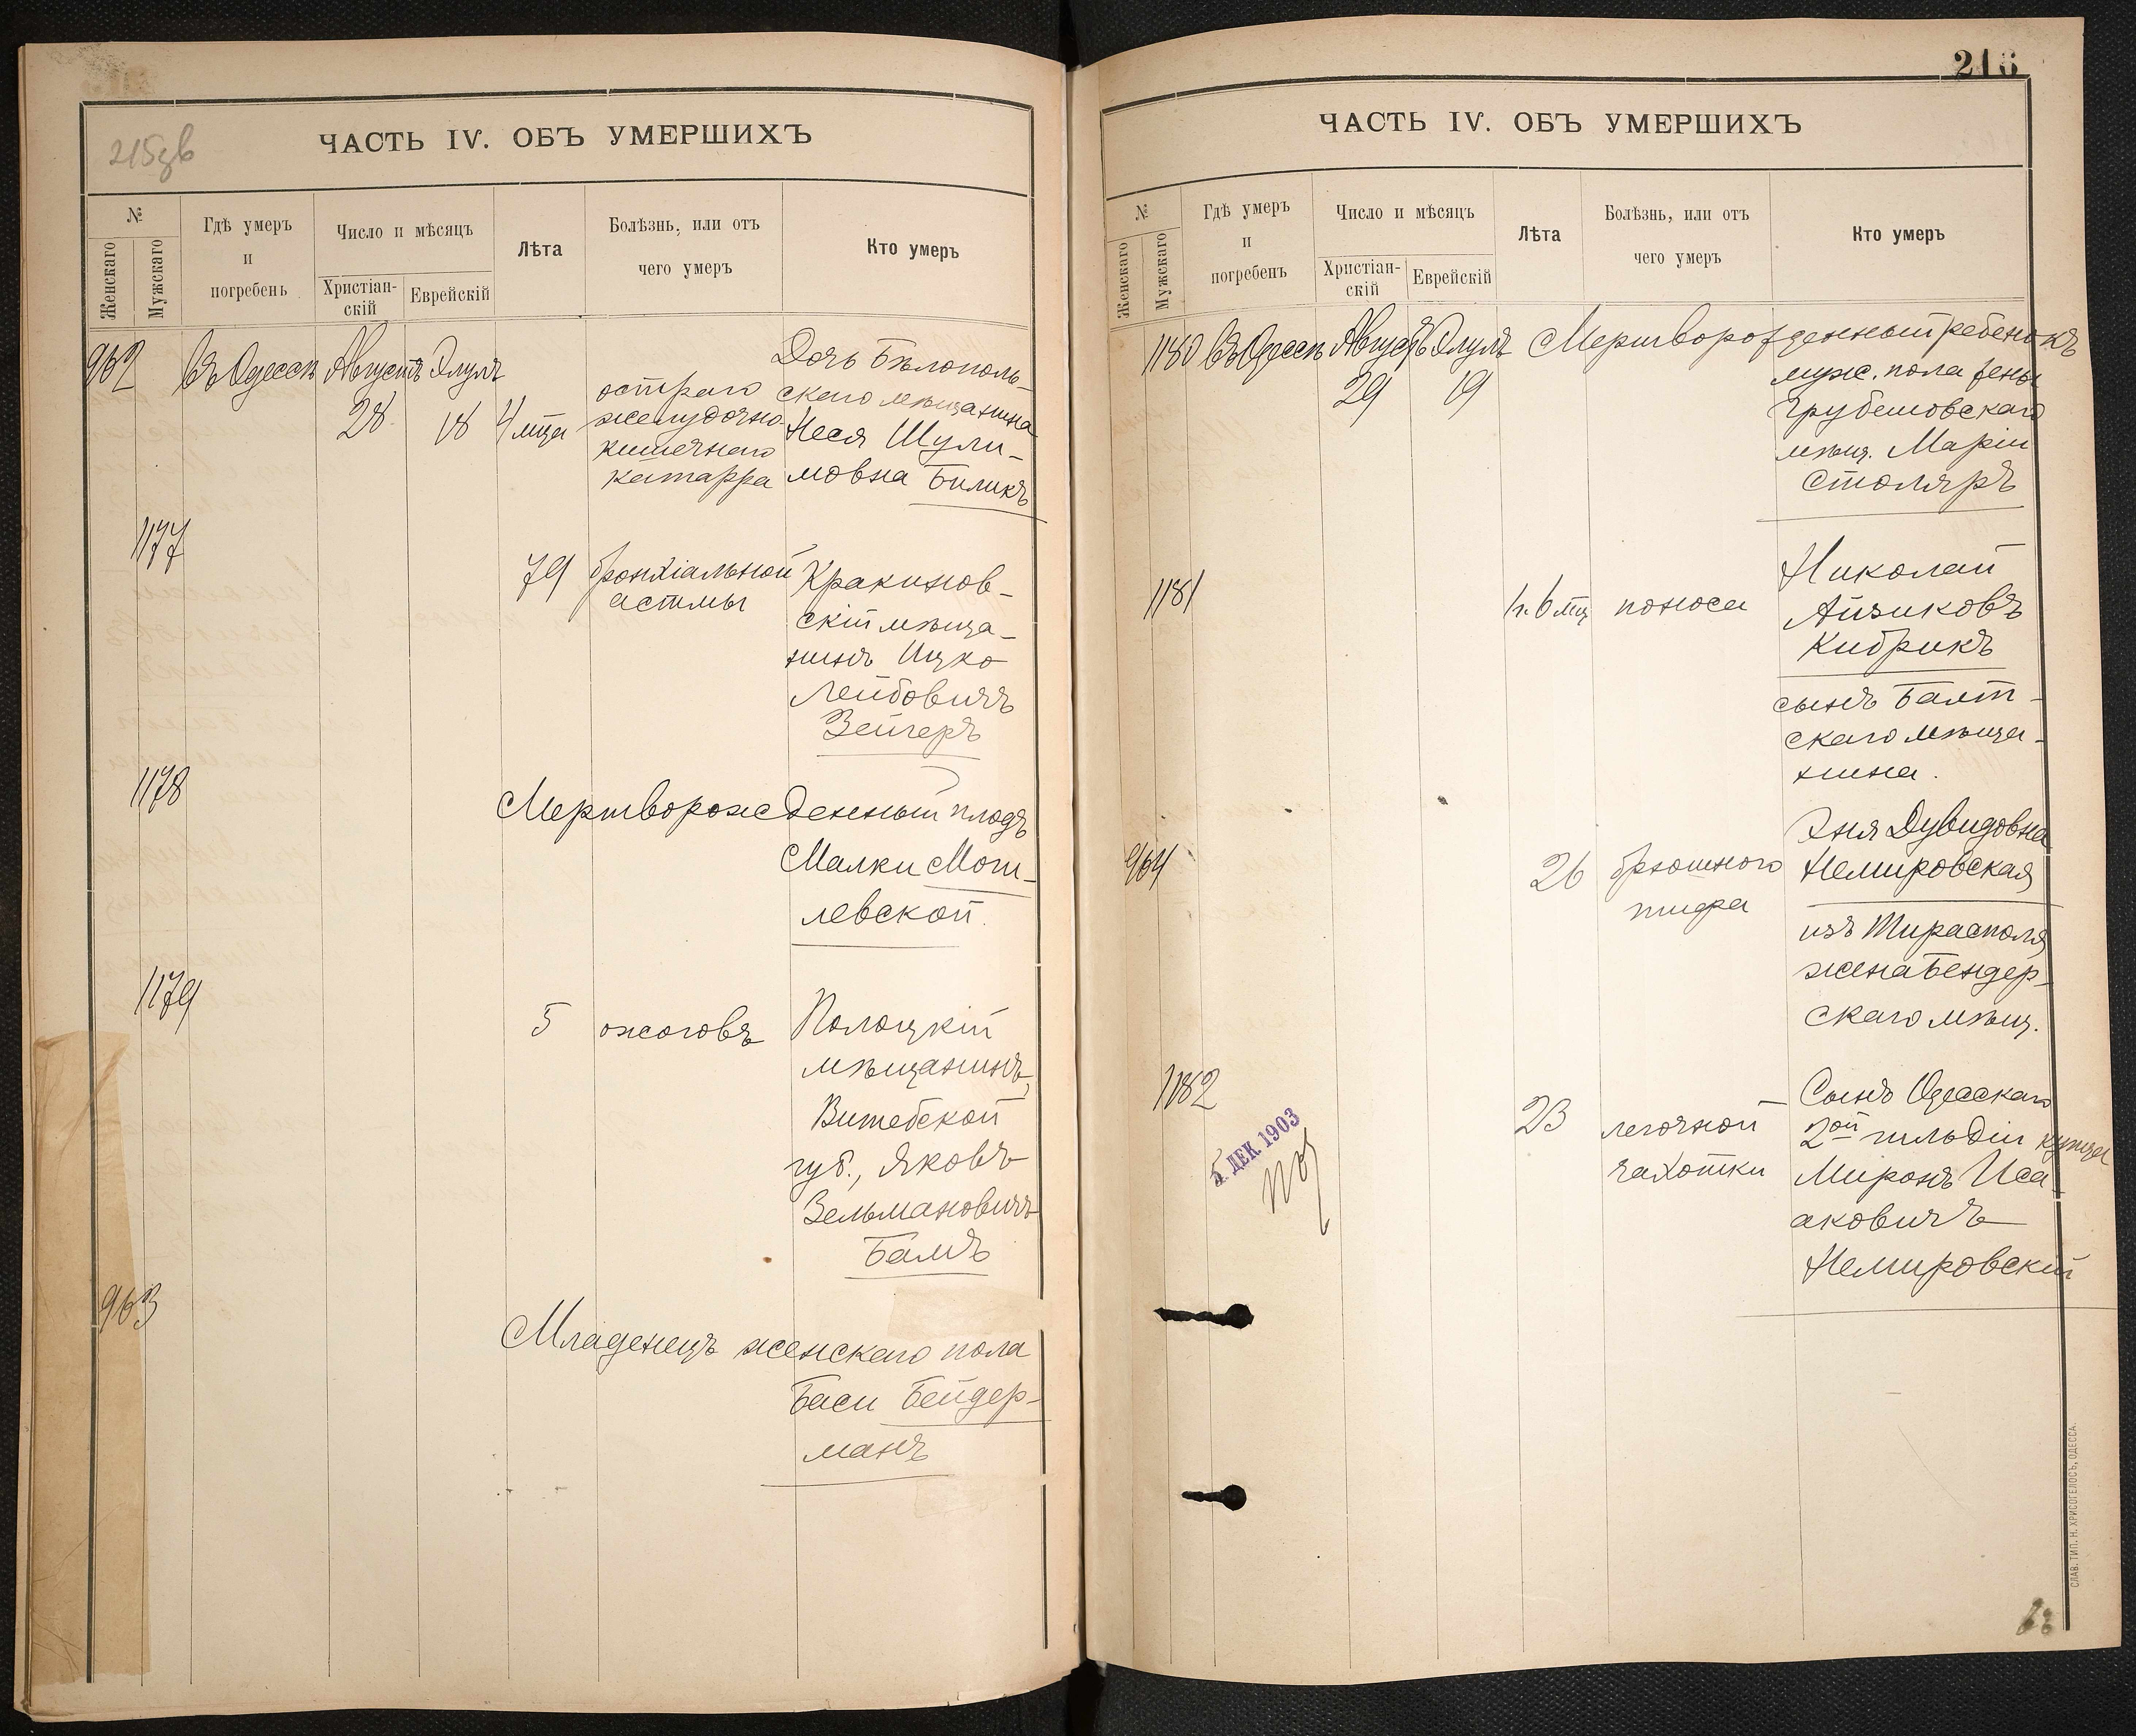 215зв
ЧАСТЬ IV. ОБЪ УМЕРШИХЪ
№
Женскаго
Мужскаго
Гдѣ умеръ
и
погребенъ
Число и мѣсяцъ
Христіан-
скій
Еврейскій
Лѣта
Болѣзнь, или отъ
чего умеръ
Кто умеръ
962 Въ Одессѣ Августъ Элулъ
28 18 4 мца
остраго
желудочно-
кишечнаго
катарра
Дочь Бѣлополь-
скаго мѣщанина
Неся Шули-
мовна Биликъ
1177
79 бронхіальной
астмы
Кракинов-
скій мѣща-
нинъ Ицко
Лейбовичъ
Зейгеръ
1178
Мертворожденный плодъ
Малки Моги-
левской.
1179
5 ожоговъ
Полоцкій
мѣщанинъ,
Витебской
губ., Яковъ
Зельмановичъ
Бамъ
963
Младенецъ женскаго пола
Баси Бейдер-
манъ
216
ЧАСТЬ IV. ОБЪ УМЕРШИХЪ
№
Женскаго
Мужскаго
Гдѣ умеръ
и
погребенъ
Число и мѣсяцъ
Христіан-
скій
Еврейскій
Лѣта
Болѣзнь, или отъ
чего умеръ
Кто умеръ
1180 Въ Одессѣ Августъ Элулъ
29 19
Мертворожденный ребенокъ
муж. пола жены
Грубешовскаго
мѣщ. Маріи
Столяръ
1181
1 г. 6 мц поноса
Николай
Айзиковъ
Кибрикъ
сынъ Балт-
скаго мѣща-
нина.
964
26 брюшного
тифа
Эня Дувидовна
Немировская
изъ Тирасполя
жена Бендер-
скаго мѣщ.
1182
23 легочной
чахотки
Сынъ Одесскаго
2ой гильдіи купца
Миронъ Иса-
аковичъ
Немировскій
5. ДЕК. 1903
СЛАВ. ТИП. Н. ХРИСОГЕЛОСЪ, ОДЕССА.